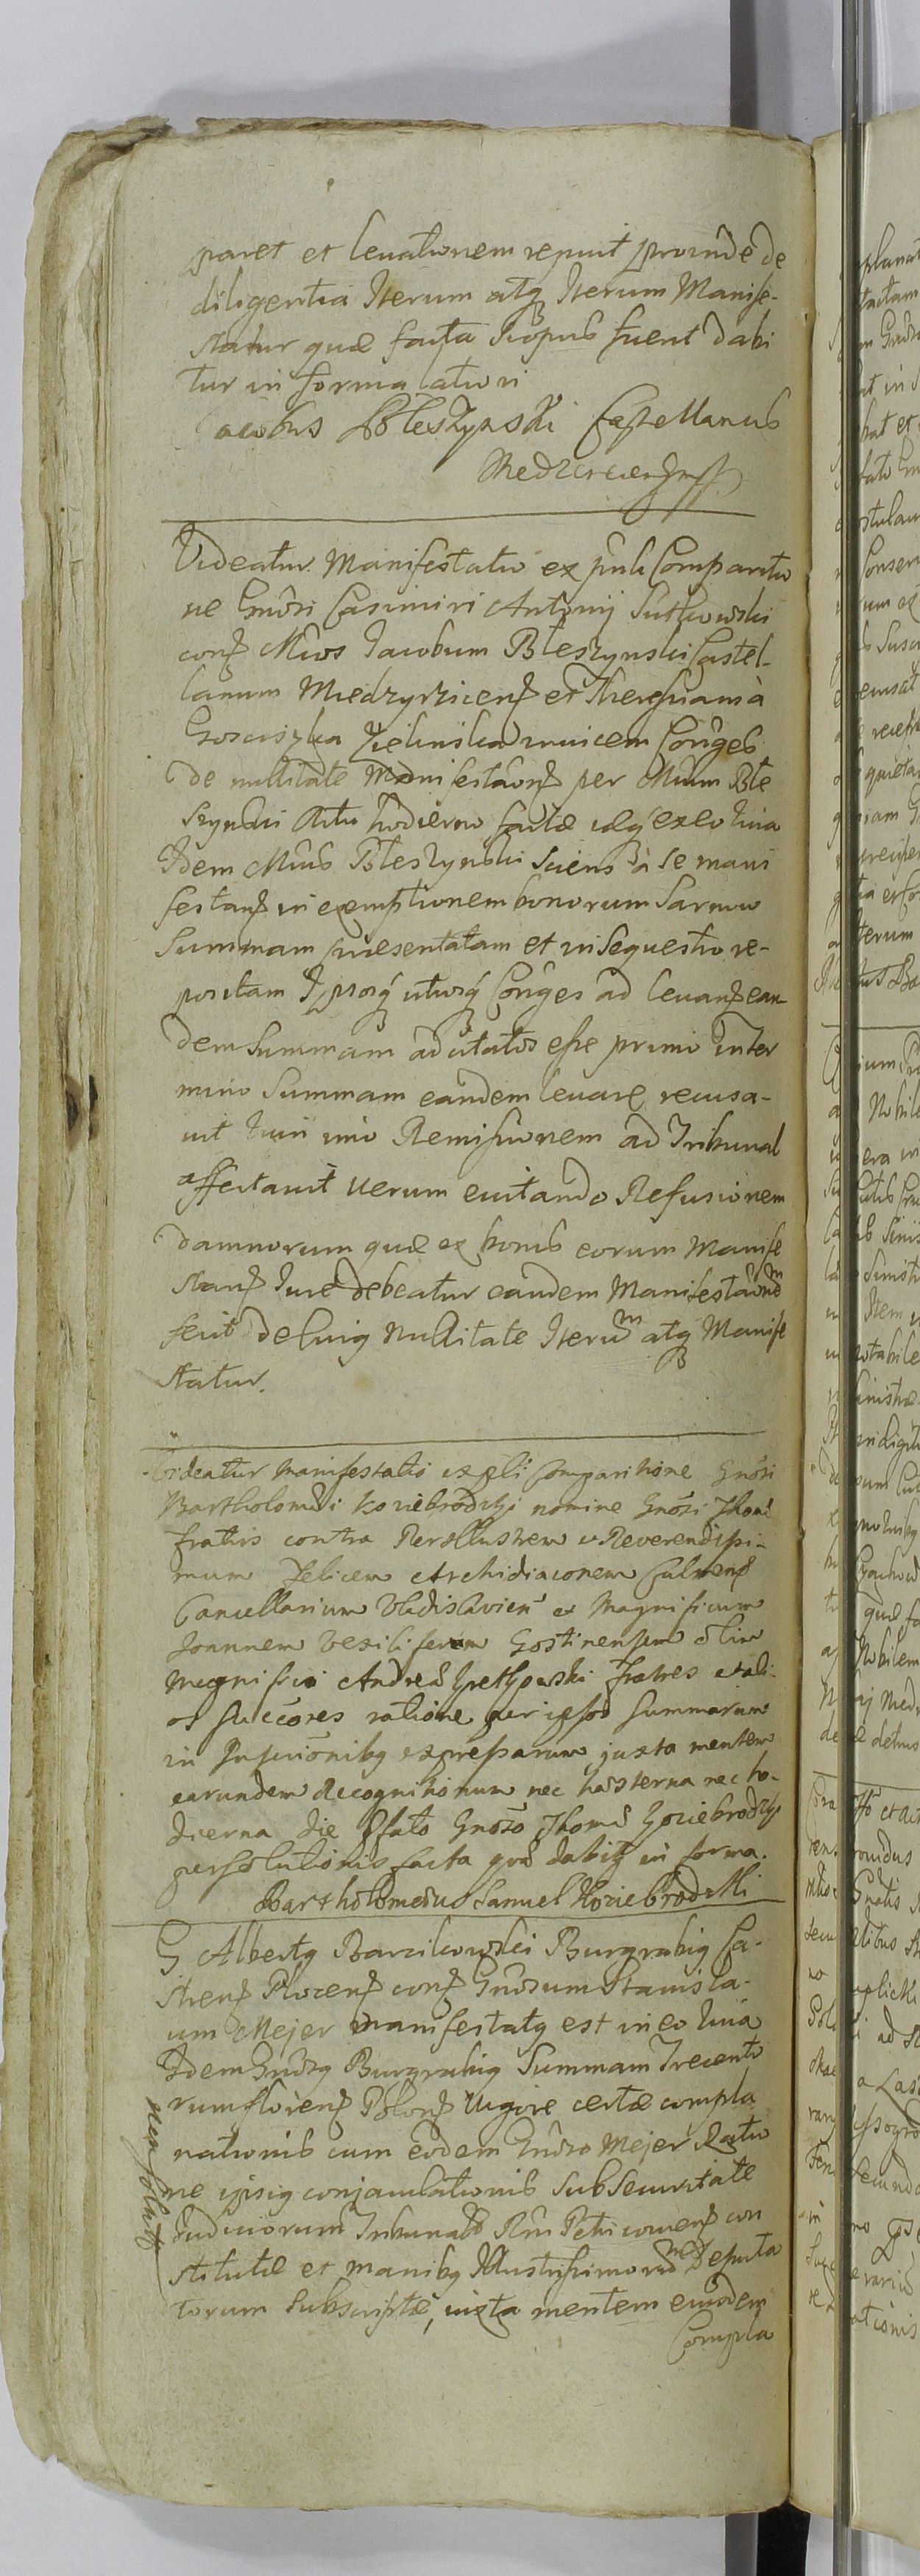 paret et levationem renuit proinde de
diligentia Iterum atq Iterum Manife-
statur quæ facta si opus fuerit dabi
tur in forma latiori
Jacobus Bleszynski Castellanus
Videatur Manifestatio ex pnli Comparitio
ne Gnosi Casimiri Antonij Sutkowski
conż Mcos Jacobum Bleszynski Castel-
lanum Miedzyrzicenż et Theresiam à
Gosciszka Zielinska invicem Conges
de nullitate Manifestaonż per Mcum Ble
szynski Actu hodierno factæ idq ex eo quia
Idem Mcus Bleszynski sciens à se mani
festanż in exemptionem bonorum Sarnow
Summam præsentatam et in sequestro re-
positam Ipsosq utosq Conges ad levanż ean-
dem Summam adcitatos esse primo inter
mino Summam eandem levare recusa-
vit quin imo Remissionem ad Tribunal
affectavit verum evitando Refusionem
damnorum quæ ex bonis eorum Manife
stanż Jure debeatur eandem Manifestaonem
fecit de cuiq nullitate Iterum atq Manife
statur.
Videatur manifestatio ex pli comparitione Gnosi
Bartholomei Koziebrodzki nomine Gnosi Thomæ
fratris contra Perillustrem et Reverendissi-
mum Felicem Archidiaconem Culmenż
Cancellarium Vladislavien et Magnificum
Joannem vexiliferum Gostinensem olim
Magnifici Andreæ fratres et ali-
os succores ratione per ipsos summarum
in Inscrionibq expressarum juxta mentem
earundem Recognitionum nec hesterna nec ho-
dierna die Pfato Gnoso Thomæ Koziebrodzki
persolutionis facta quæ dabitq in forma.
Bartholomeus Samuel Koziebrodzki
G Albertq Barcikowski Burgrabiq Ca-
strenż Plocenż conż Gnosum Stanisla-
um Mejer manifestatq est in eo quia
Idem Gnosq Burgrabiq Summam Trecento
rum florenż Polonż vigore certæ compla
nationis cum eodem Gnoso Mejer Ratio
ne ipsiq sub securitate
Judiciorum Tribunalis Rni Petricovienż con
stitutæ et manibq Illustrissimorum Deputa
torum subscriptæ, iuxta mentem eiusdem
Compla